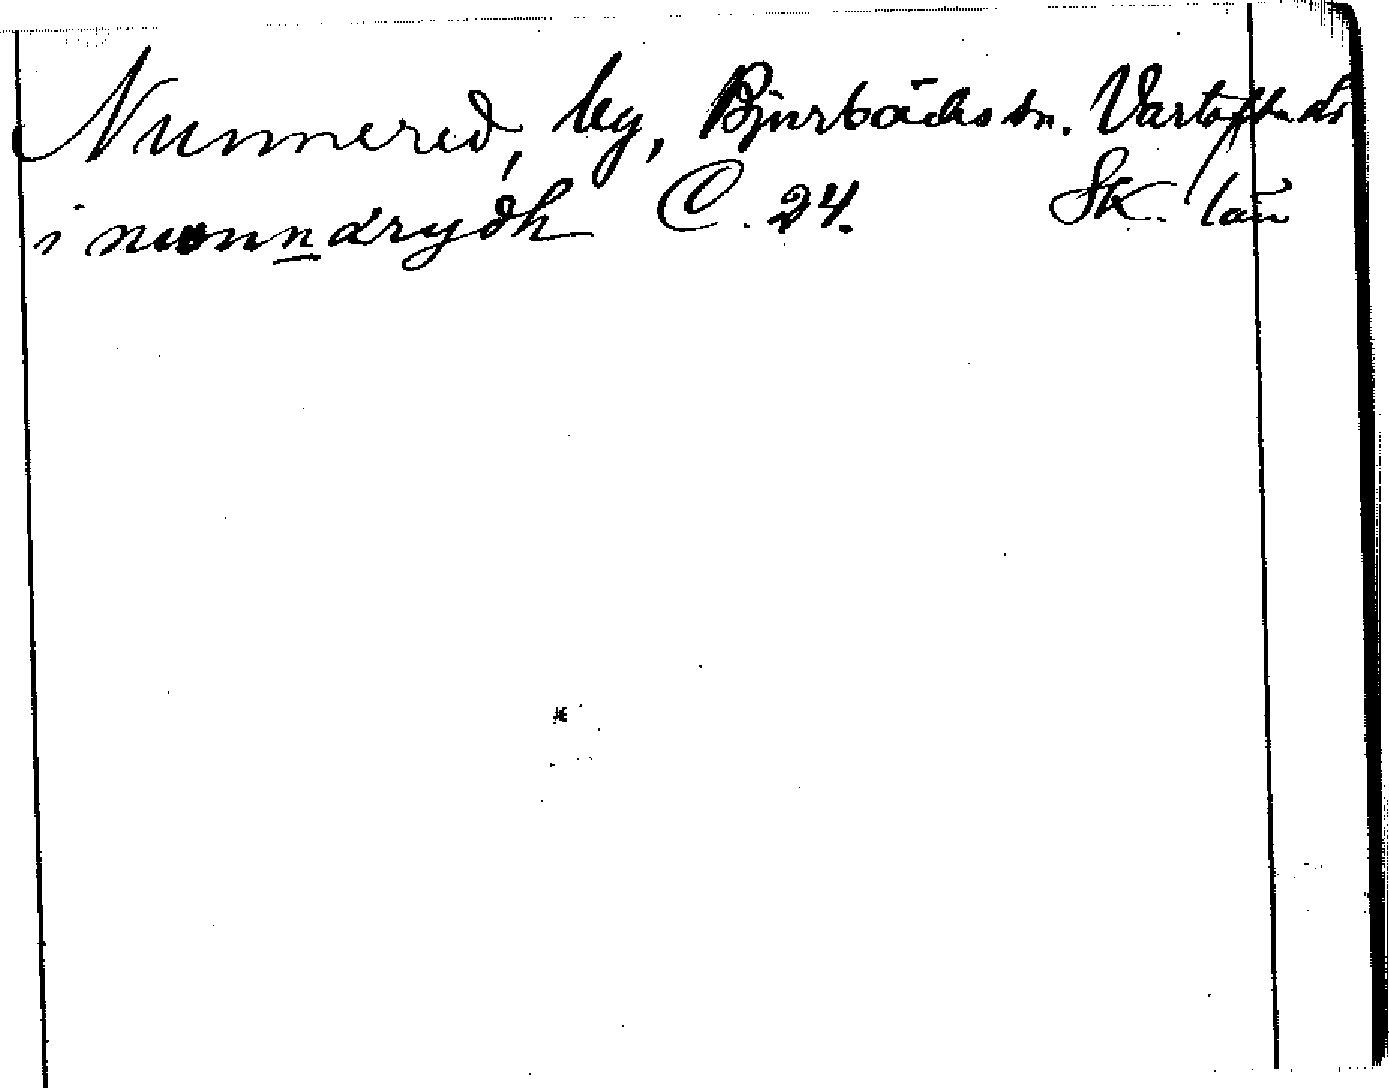 Nunnered, by, Bjurbäcks sn. Vartofta hd
i nunnarydh C. 24. Sk. län